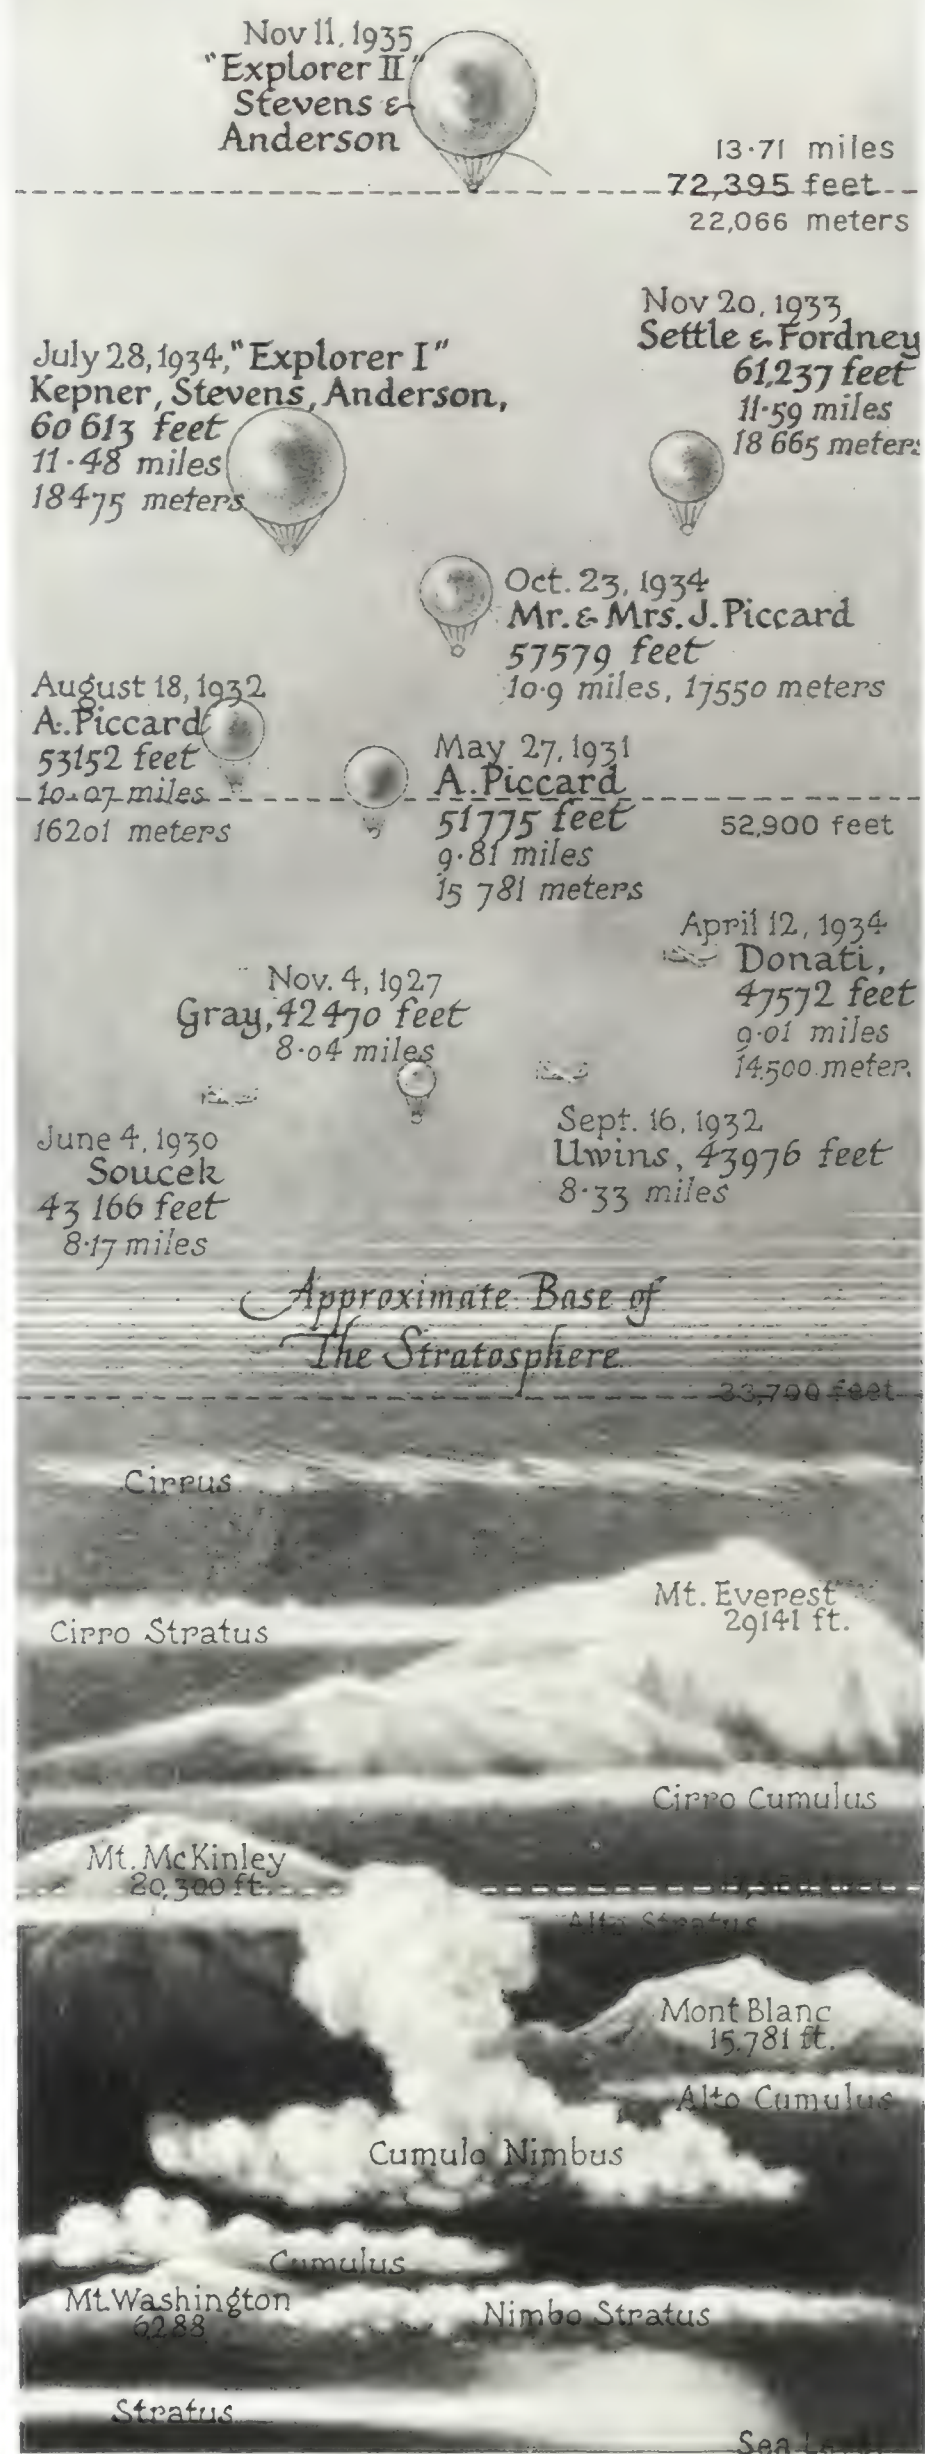 Nov 11, 1935
"Explorer II"
Stevens &
Anderson
13·71 miles
72,395 feet
22,066 meters
Nov 20, 1933
Settle & Fordney
61,237 feet
11·59 miles
18 665 meters
July 28, 1934, "Explorer I"
Kepner, Stevens, Anderson,
60 613 feet
11·48 miles
18475 meters
Oct. 23, 1934
Mr. & Mrs. J. Piccard
57579 feet
10·9 miles, 17550 meters
August 18, 1932
A. Piccard
53152 feet
10·07 miles
16201 meters
May 27, 1931
A. Piccard
51775 feet
9·81 miles
15 781 meters
52,900 feet
April 12, 1934
Donati,
47572 feet
9·01 miles
14,500 meter
Nov. 4, 1927
Gray, 42470 feet
8·04 miles
Sept. 16, 1932
Uwins, 43976 feet
8·33 miles
June 4, 1930
Soucek
43 166 feet
8·17 miles
Approximate Base of
The Stratosphere
33,700 feet
Cirrus
Mt. Everest
29141 ft.
Cirro Stratus
Cirro Cumulus
Mt. McKinley
20,300 ft.
Alto Stratus
Mont Blanc
15,781 ft.
Alto Cumulus
Cumulo Nimbus
Cumulus
Mt. Washington
6288
Nimbo Stratus
Stratus
Sea